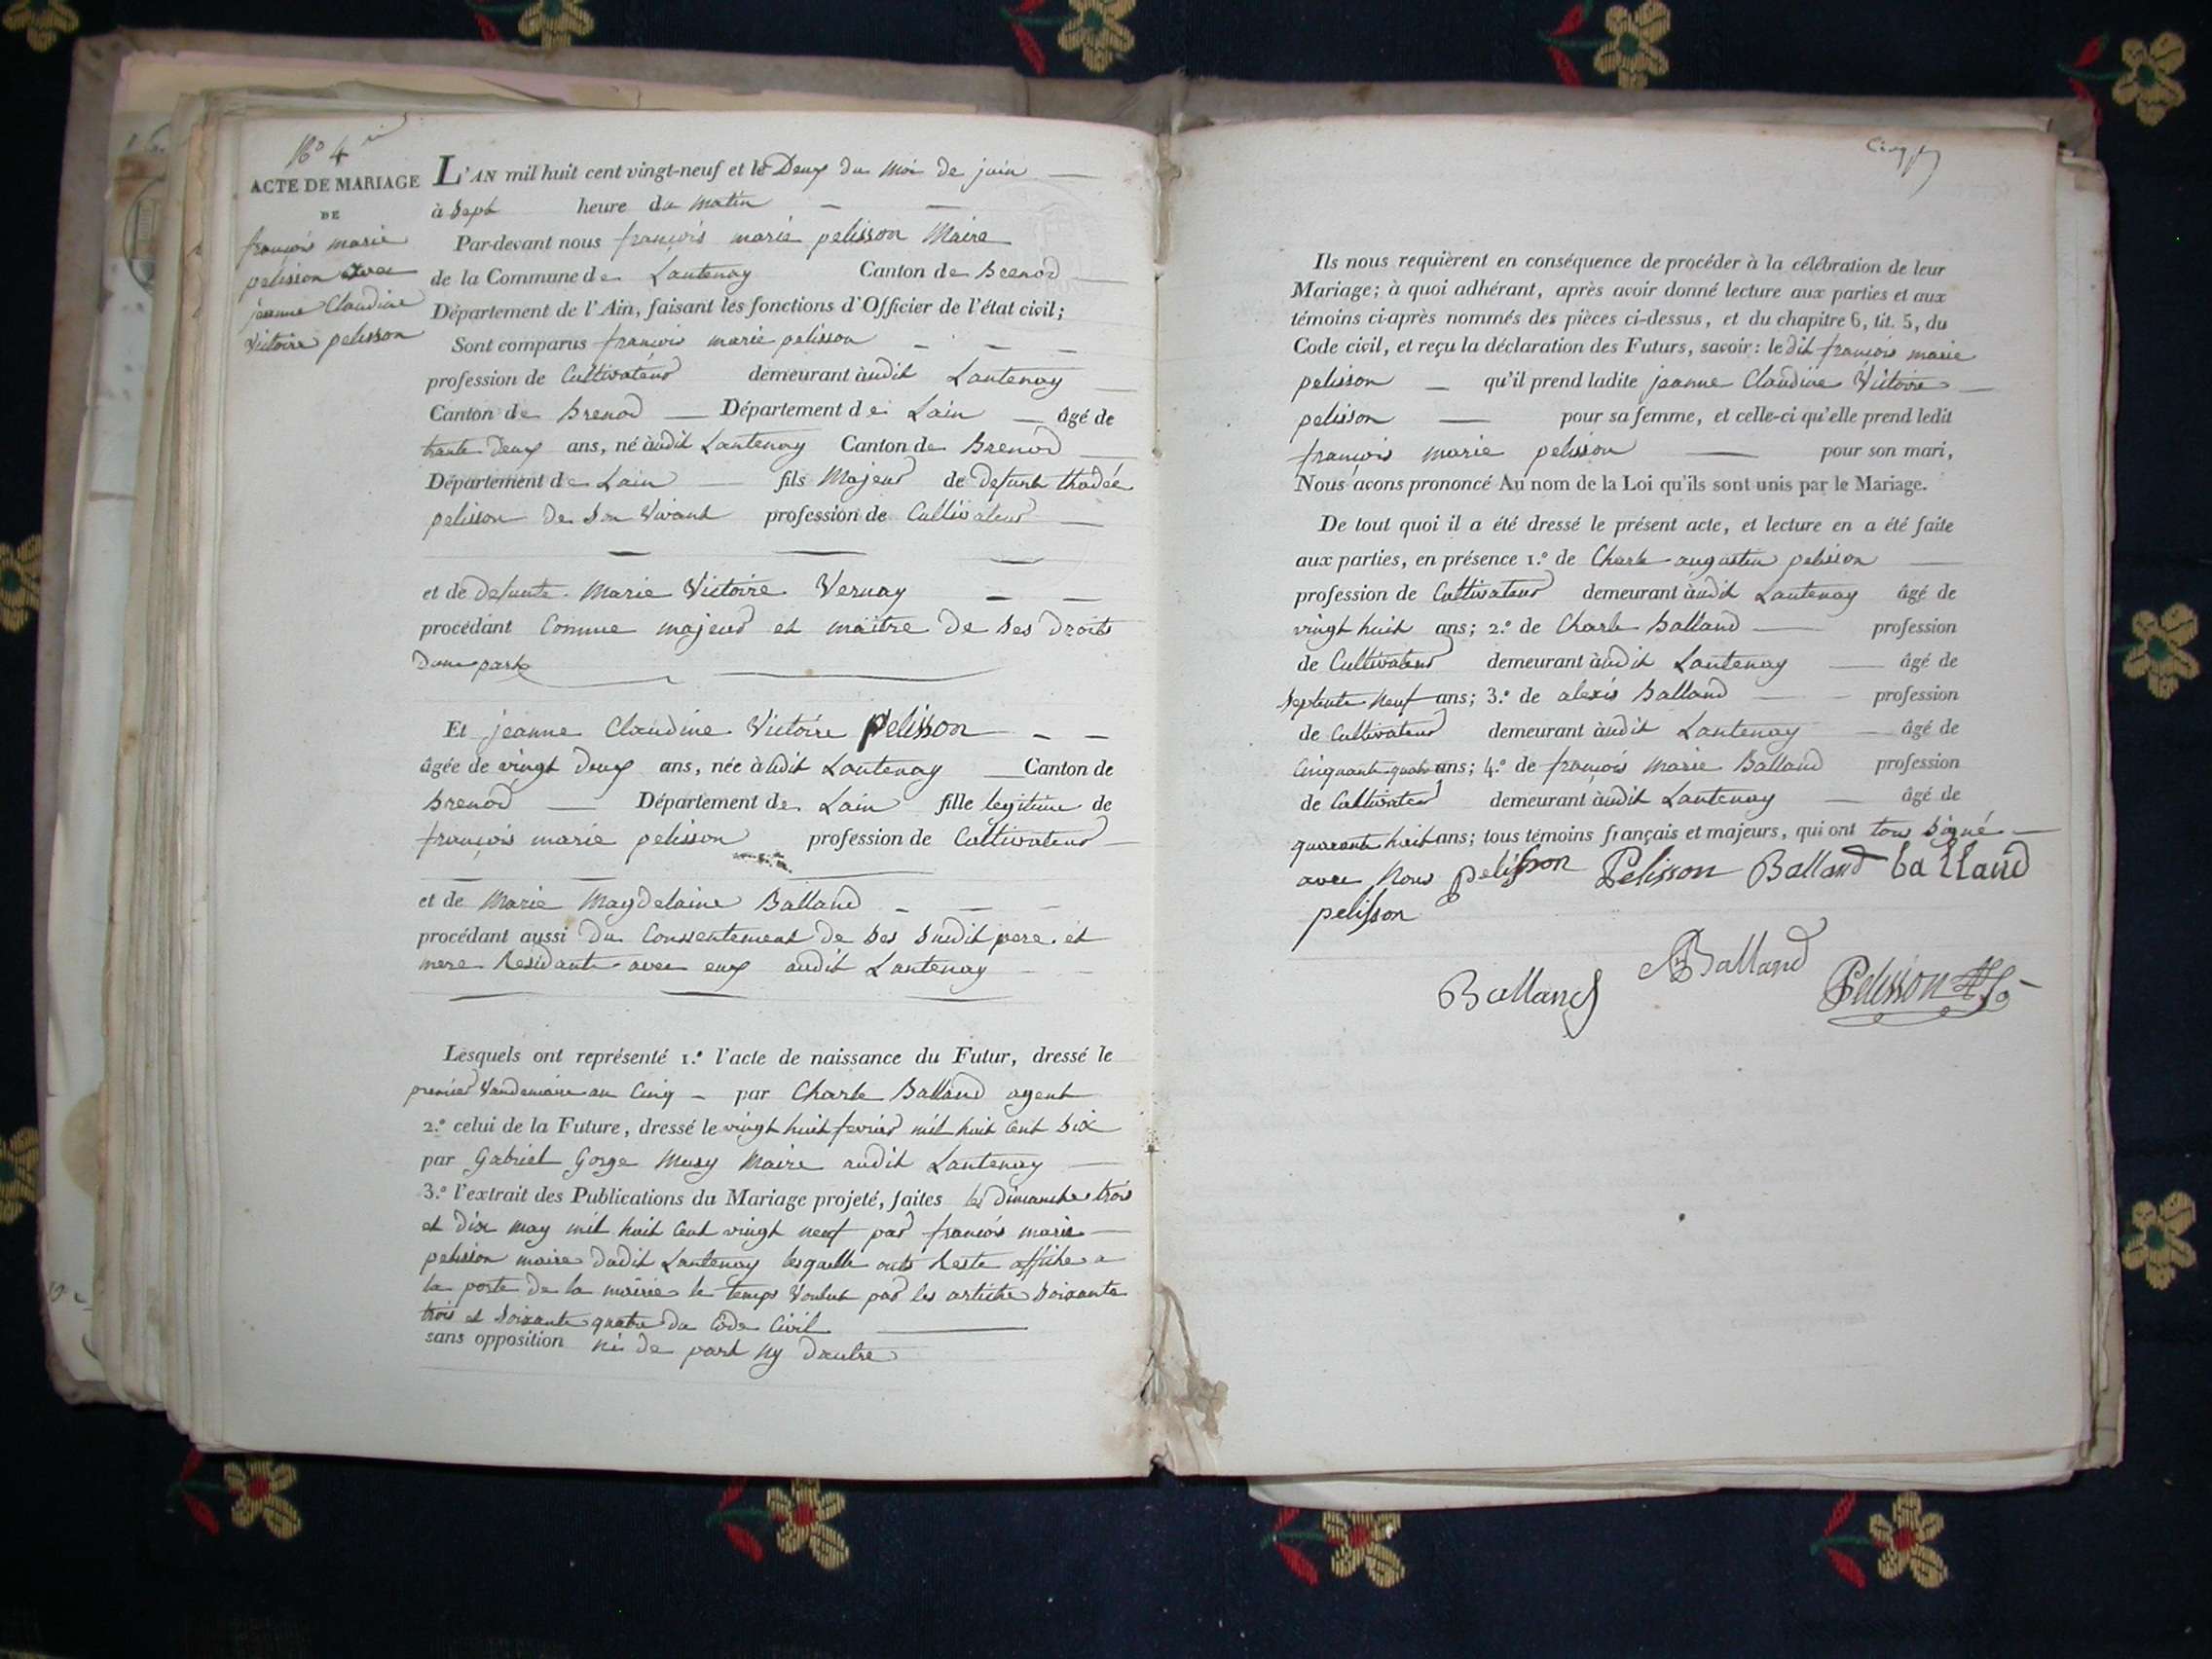 N° 4
ACTE DE MARIAGE
DE
françois marie
pelisson avec
jeanne Claudine
Victoire pelisson
L'AN mil huit cent vingt-neuf et le Deux du moi de juin
à Sept heure du matin
Par-devant nous françois marie pelisson Maire
de la Commune de Lantenay Canton de Brenod
Département de l'Ain, faisant les fonctions d'Officier de l'état civil;
Sont comparus françois marie pelisson
profession de Cultivateur demeurant àudit Lantenay
Canton de Brenod Département de Lain âgé de
trante deux ans, né àudit Lantenay Canton de Brenod
Département de Lain fils Majeur de defunt thadée
pelisson de son vivant profession de Cultivateur
et de defunte Marie Victoire Vernay
procédant Comme majeur et maitre de ses droits
dune part
Et jeanne Claudine Victoire Pelisson
âgée de vingt deux ans, née àudit Lantenay Canton de
Brenod Département de Lain fille legitime de
françois marie pelisson profession de Cultivateur
et de Marie Magdelaine Balland
procédant aussi du Consentement de ses sudit pere et
mere Residante avec eux audit Lantenay
Lesquels ont représenté 1.° l'acte de naissance du Futur, dressé le
premier Vandemiaire an Cinq par Charle Balland agent
2.° celui de la Future, dressé le vingt huit fevrier mil huit Cent Six
par Gabriel Gorge Musy Maire audit Lantenay
3.° l'extrait des Publications du Mariage projeté, faites les dimanche trois
et dix may mil huit Cent vingt neuf par françois marie
pelisson maire dudit Lantenay lesquelle onts Resté affiche a
la porte de la mairie le temps Voulut par les article soixante
trois et soixante quatre du Code Civil
sans opposition ni de part ny dautre
Ils nous requièrent en conséquence de procéder à la célébration de leur
Mariage; à quoi adhérant, après avoir donné lecture aux parties et aux
témoins ci-après nommés des pièces ci-dessus, et du chapitre 6, tit. 5, du
Code civil, et reçu la déclaration des Futurs, savoir: le dit françois marie
pelisson qu'il prend ladite jeanne Claudine Victoire
pelisson pour sa femme, et celle-ci qu'elle prend ledit
françois marie pelisson pour son mari,
Nous avons prononcé Au nom de la Loi qu'ils sont unis par le Mariage.
De tout quoi il a été dressé le présent acte, et lecture en a été faite
aux parties, en présence 1.° de Charle augustin pelisson
profession de Cultivateur demeurant àudit Lantenay âgé de
vingt huit ans; 2.° de Charle Balland profession
de Cultivateur demeurant àudit Lantenay âgé de
Septente neuf ans; 3.° de alexis Balland profession
de Cultivateur demeurant àudit Lantenay âgé de
Cinquante quatre ans; 4.° de françois marie Balland profession
de Cultivateur demeurant àudit Lantenay âgé de
quarante huit ans; tous témoins français et majeurs, qui ont tous signé
avec nous pelisson Pelisson Balland balland
pelisson
Balland Balland Pelisson